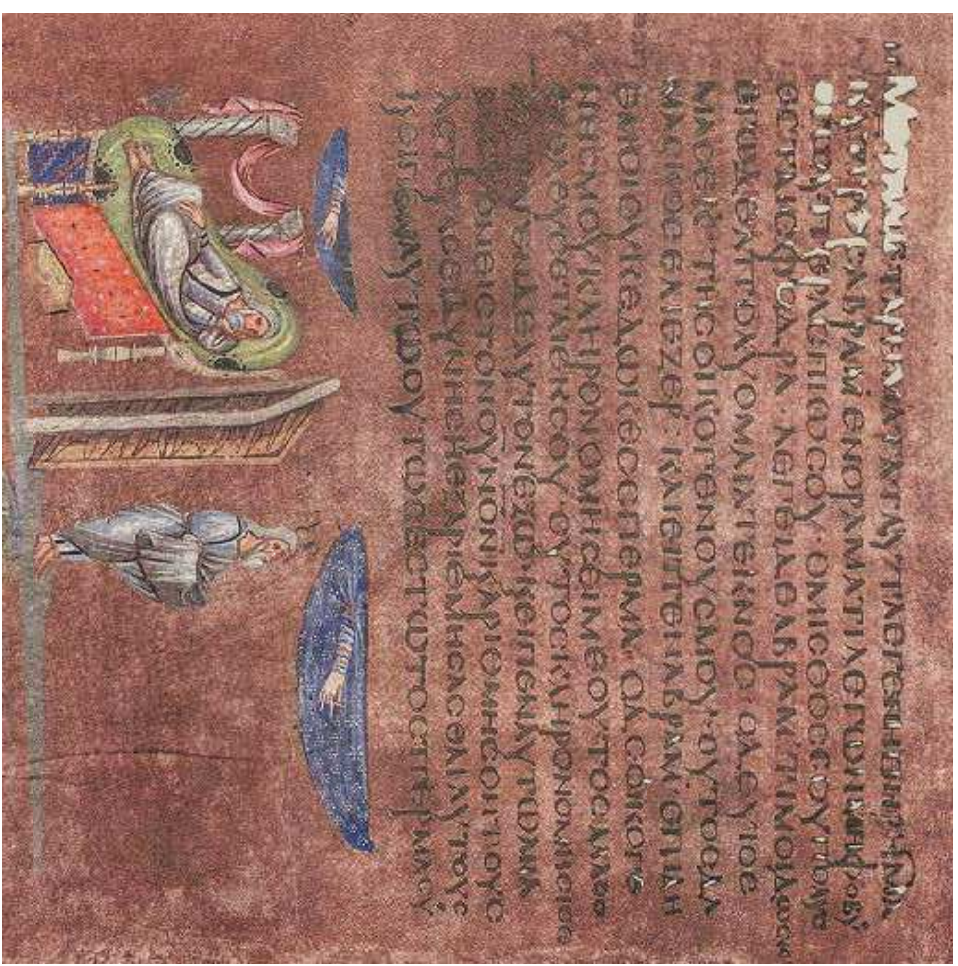 ΜΕΤΑΔΕΤΑΡΗΜΑΤΑΤΑΥΤΑΕΓΕΝΗΘΗΡΗΜΑ
ΚΥΠΡΟϹΑΒΡΑΜΕΝΟΡΑΜΑΤΙΛΕΓΩΝΜΗΦΟΒΟΥ
ΥΠΕΡΑϹΠΙΩϹΟΥ·ΟΜΙϹΘΟϹϹΟΥΠΟΛΥϹ
ΕϹΤΑΙϹΦΟΔΡΑ·ΛΕΓΕΙΔΕΑΒΡΑΜΤΙΜΟΙΔΩϹΙϹ
ΕΓΩΔΕΑΠΟΛΥΟΜΑΙΑΤΕΚΝΟϹ ΟΔΕΥΙΟϹ
ΜΑϹΕΚ ΤΗϹΟΙΚΟΓΕΝΟΥϹΜΟΥ·ΟΥΤΟϹΔΑ
ΜΑϹΚΟϹΕΛΙΕΖΕΡ· ΚΑΙΕΙΠΕΝΑΒΡΑΜ·ΕΠΙΔΗ
ΕΜΟΙΟΥΚΕΔΩΚΕϹϹΠΕΡΜΑ· ΟΔΕΟΙΚΟΓΕ
ΝΗϹΜΟΥΚΛΗΡΟΝΟΜΗϹΕΙΜΕΟΥΤΟϹΑΛΛΟϹ
ΕΞΕΛΕΥϹΕΤΑΙΕΚϹΟΥ·ΟΥΤΟϹΚΛΗΡΟΝΟΜΙϹΙϹΕ
ΔΕΑΥΤΟΝΕΞΩ·ΚΕΙΠΕΝΑΥΤΩΑΝΑ
ΒΛΕΨΟΝΕΙϹΤΟΝΟΥΝΟΝΚΑΡΙΘΜΗϹΟΝΤΟΥϹ
ΑϹΤΕΡΑϹΕΙΔΥΝΗϹΗΕΞΑΡΙΘΜΗϹΑϹΘΑΙΑΥΤΟΥϹ
ΚΕΙΠΕΝΑΥΤΩΟΥΤΩϹΕϹΤΩΤΟϹΠΕΡΜΑϹΟΥ